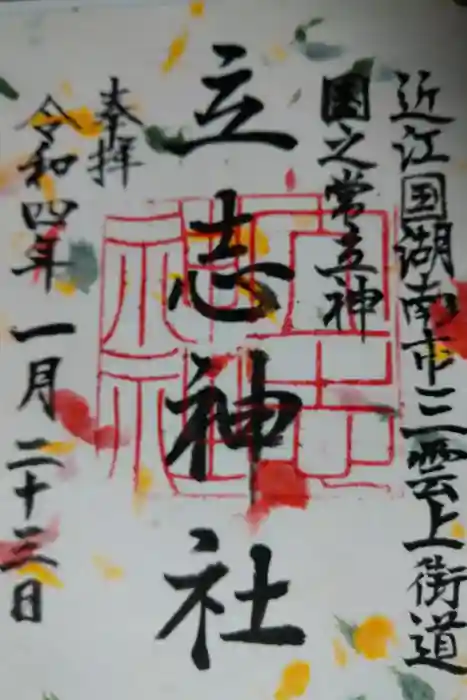 近江国湖南市三雲上街道
国之常立神
立志神社
奉拝
令和四年 一月 二十三日